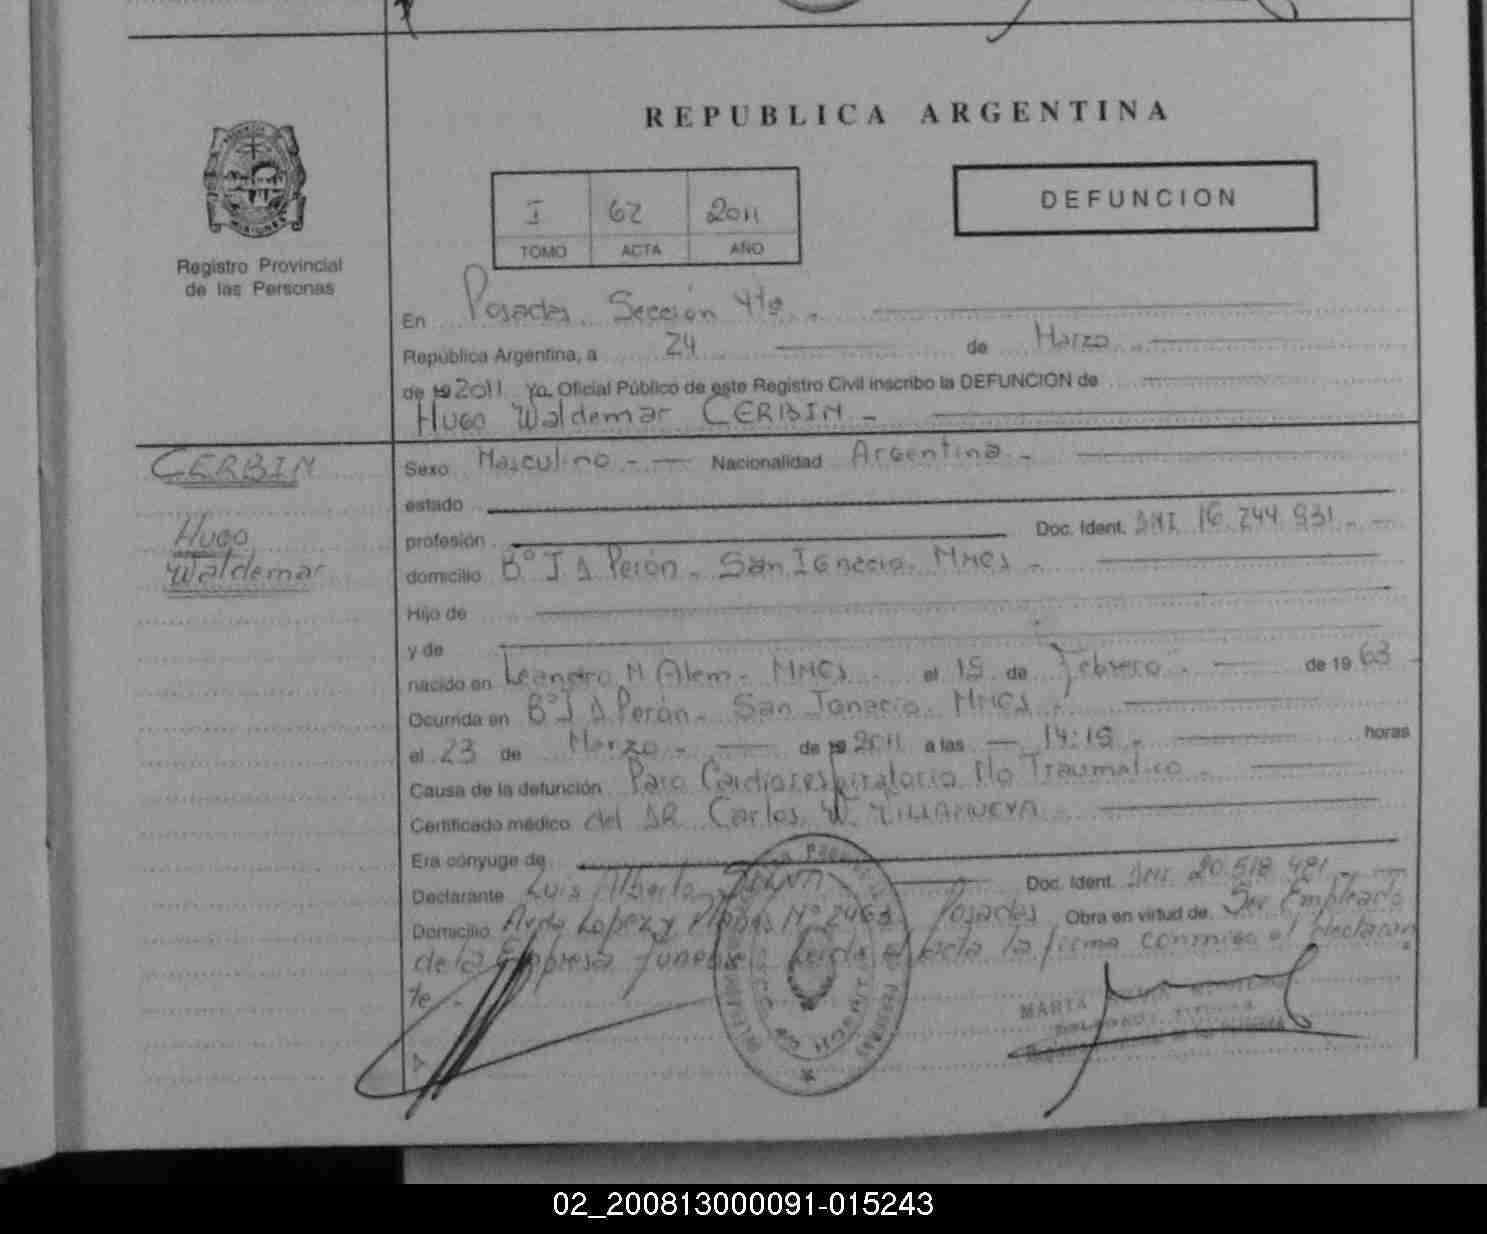 REPUBLICA ARGENTINA
MISIONES
Registro Provincial
de las Personas
I 62 2011
TOMO ACTA AÑO
DEFUNCION
En Posadas Sección 4ta.
República Argentina, a 24 de Marzo
de 19 2011 yo, Oficial Público de este Registro Civil inscribo la DEFUNCION de
Hugo Waldemar CERBIN -
CERBIN
Hugo
Waldemar
Sexo Masculino - Nacionalidad Argentina -
estado
profesión Doc. Ident. DNI 16.244.931 -
domicilio Bº J D Perón - San Ignacio - Mnes -
Hijo de
y de
nacido en Leandro N Alem - Mnes - el 15 de Febrero - de 19 63
Ocurrida en Bº J D Perón - San Ignacio - Mnes -
el 23 de Marzo - de 19 2011 a las 14:15 - horas
Causa de la defunción Paro Cardiorespiratorio No Traumatico -
Certificado médico del DR Carlos W. VILLANUEVA -
Era cónyuge de
Declarante Luis Alberto Doc. Ident. DNI 20.518.481 -
Domicilio Avda Lopez y Planes Nº 2463 Posadas Obra en virtud de Ser Empleado
de la Empresa Funebre Leida el acta la firma conmigo el declaran
te -
MARTA
02_200813000091-015243